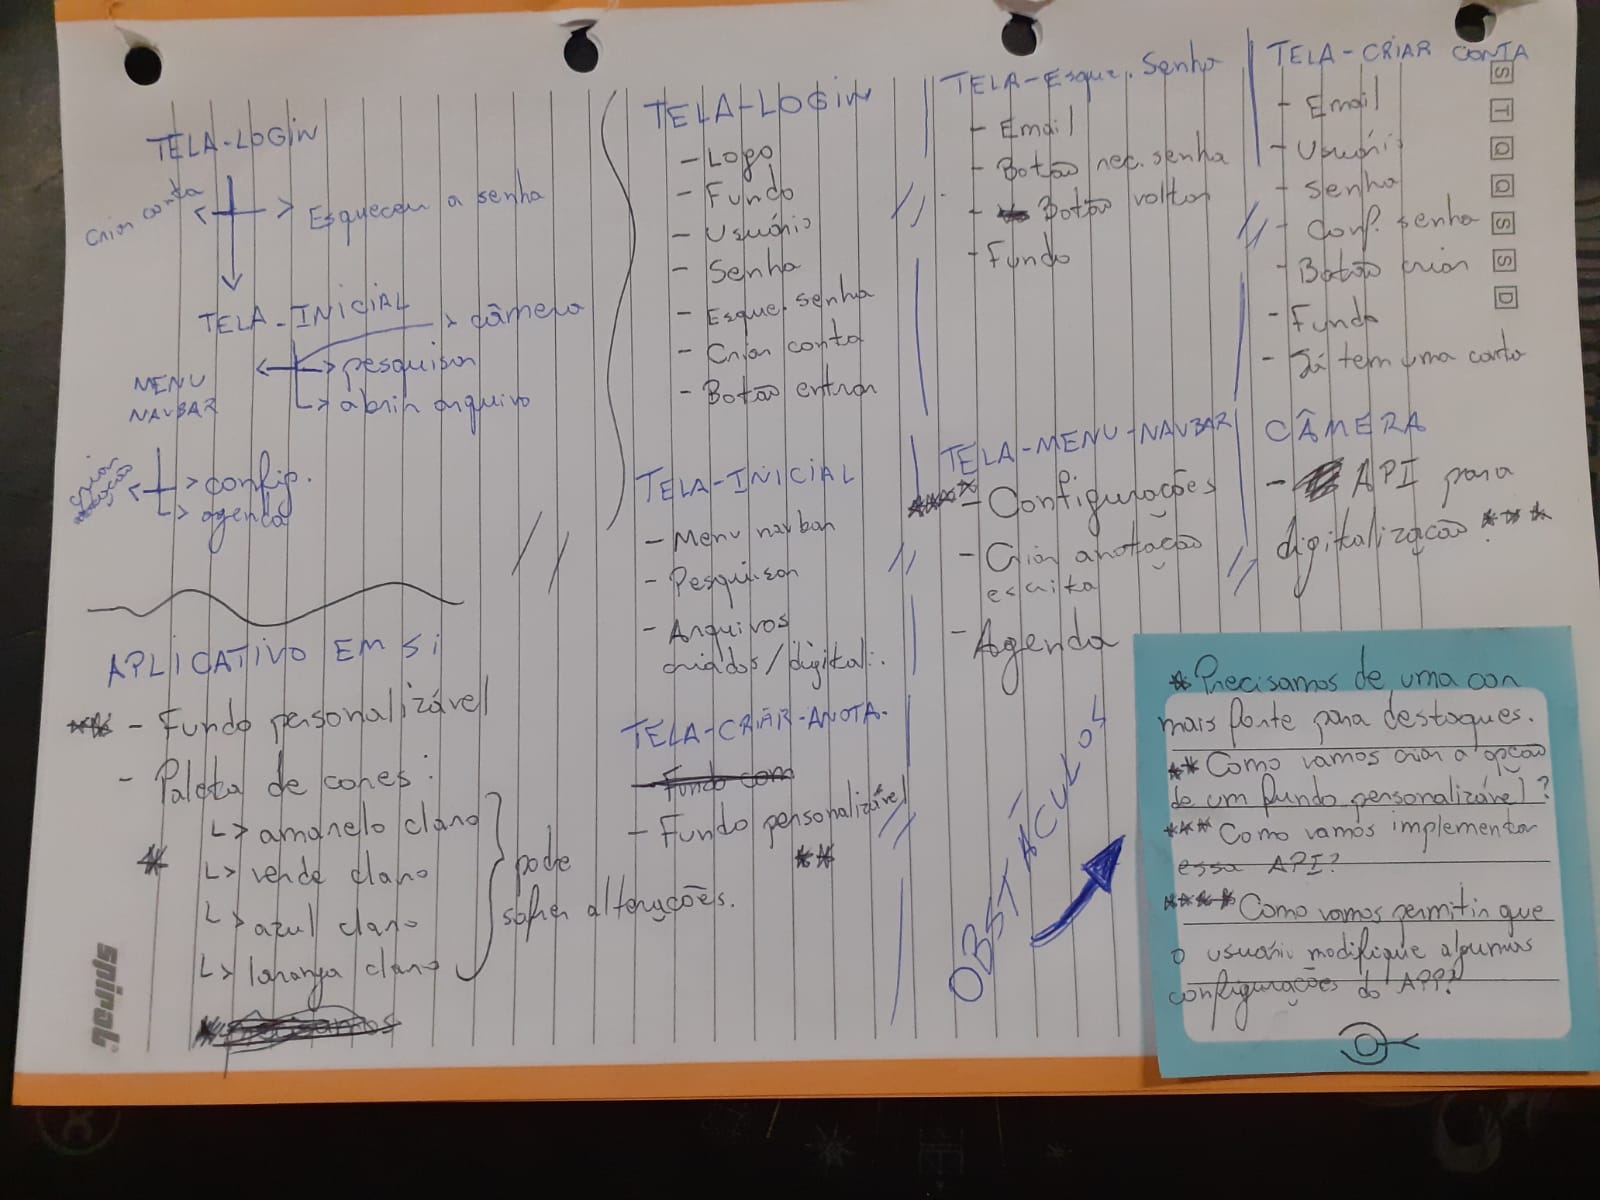 TELA-LOGIN
Criar conta
Esqueceu a senha
TELA-INICIAL
câmera
pesquisar
abrir arquivo
MENU
NAVBAR
criar
config.
agenda
APLICATIVO EM SI
** - Fundo personalizável
- Paleta de cores:
amarelo claro
* verde claro
azul claro
laranja claro
pode
sofrer alterações.
spiral
TELA-LOGIN
- Logo
- Fundo
- Usuário
- Senha
- Esque. senha
- Criar conta
- Botão entrar
TELA-INICIAL
- Menu navbar
- Pesquisar
- Arquivos
criados/digitali.
TELA-CRIAR-ANOTA.
Fundo com
- Fundo personalizável
**
TELA-Esque. Senha
- Email
- Botão rec. senha
- Botão voltar
- Fundo
TELA-MENU-NAVBAR
**** - Configurações
- Criar anotação
escrita
- Agenda
TELA-CRIAR CONTA
- Email
- Usuário
- Senha
- Conf. senha
- Botão criar
- Fundo
- Já tem uma conta
S
T
Q
Q
S
S
D
CÂMERA
- API para
digitalização ***
OBSTÁCULOS
* Precisamos de uma cor
mais forte para destaques.
** Como vamos criar a opção
de um fundo personalizável?
*** Como vamos implementar
essa API?
**** Como vamos permitir que
o usuário modifique algumas
configurações do APP?